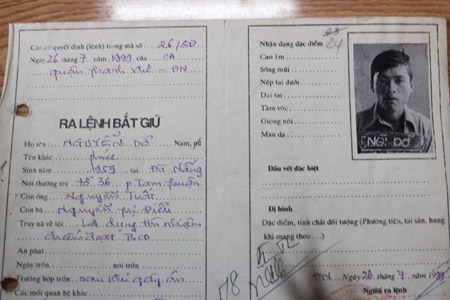 Căn cứ quyết định (lệnh) trong mã số : 26/QĐ
Ngày 26 tháng 7 năm 1999 của CA
quận Thanh Khê - ĐN
RA LỆNH BẮT GIỮ
Họ tên NGUYỄN DỞ Nam, nữ
Tên khác
Sinh năm 1959 tại Đà Nẵng
Nơi thường trú tổ 36 p Tam Thuận
Con ông Nguyễn
Con bà Nguyễn Thị Điểu
Truy nã về tội Lợi dụng tín nhiệm
chiếm đoạt
Án phạt
Ngày trốn nơi trốn
Trường hợp trốn sau khi gây án
Các mối quan hệ khác
78
24
Nhận dạng đặc điểm
Cao 1m
Sống mũi
Nếp tai dưới
Dái tai
Tầm vóc
Giọng nói
Màu da
NG DỞ
Dấu vết đặc biệt
Dị hình
Đặc điểm, tính chất đối tượng (Phương tiện, tài sản, hung
khí mang theo ...)
Ngày 28 tháng 7 năm 1999
Người ra lệnh